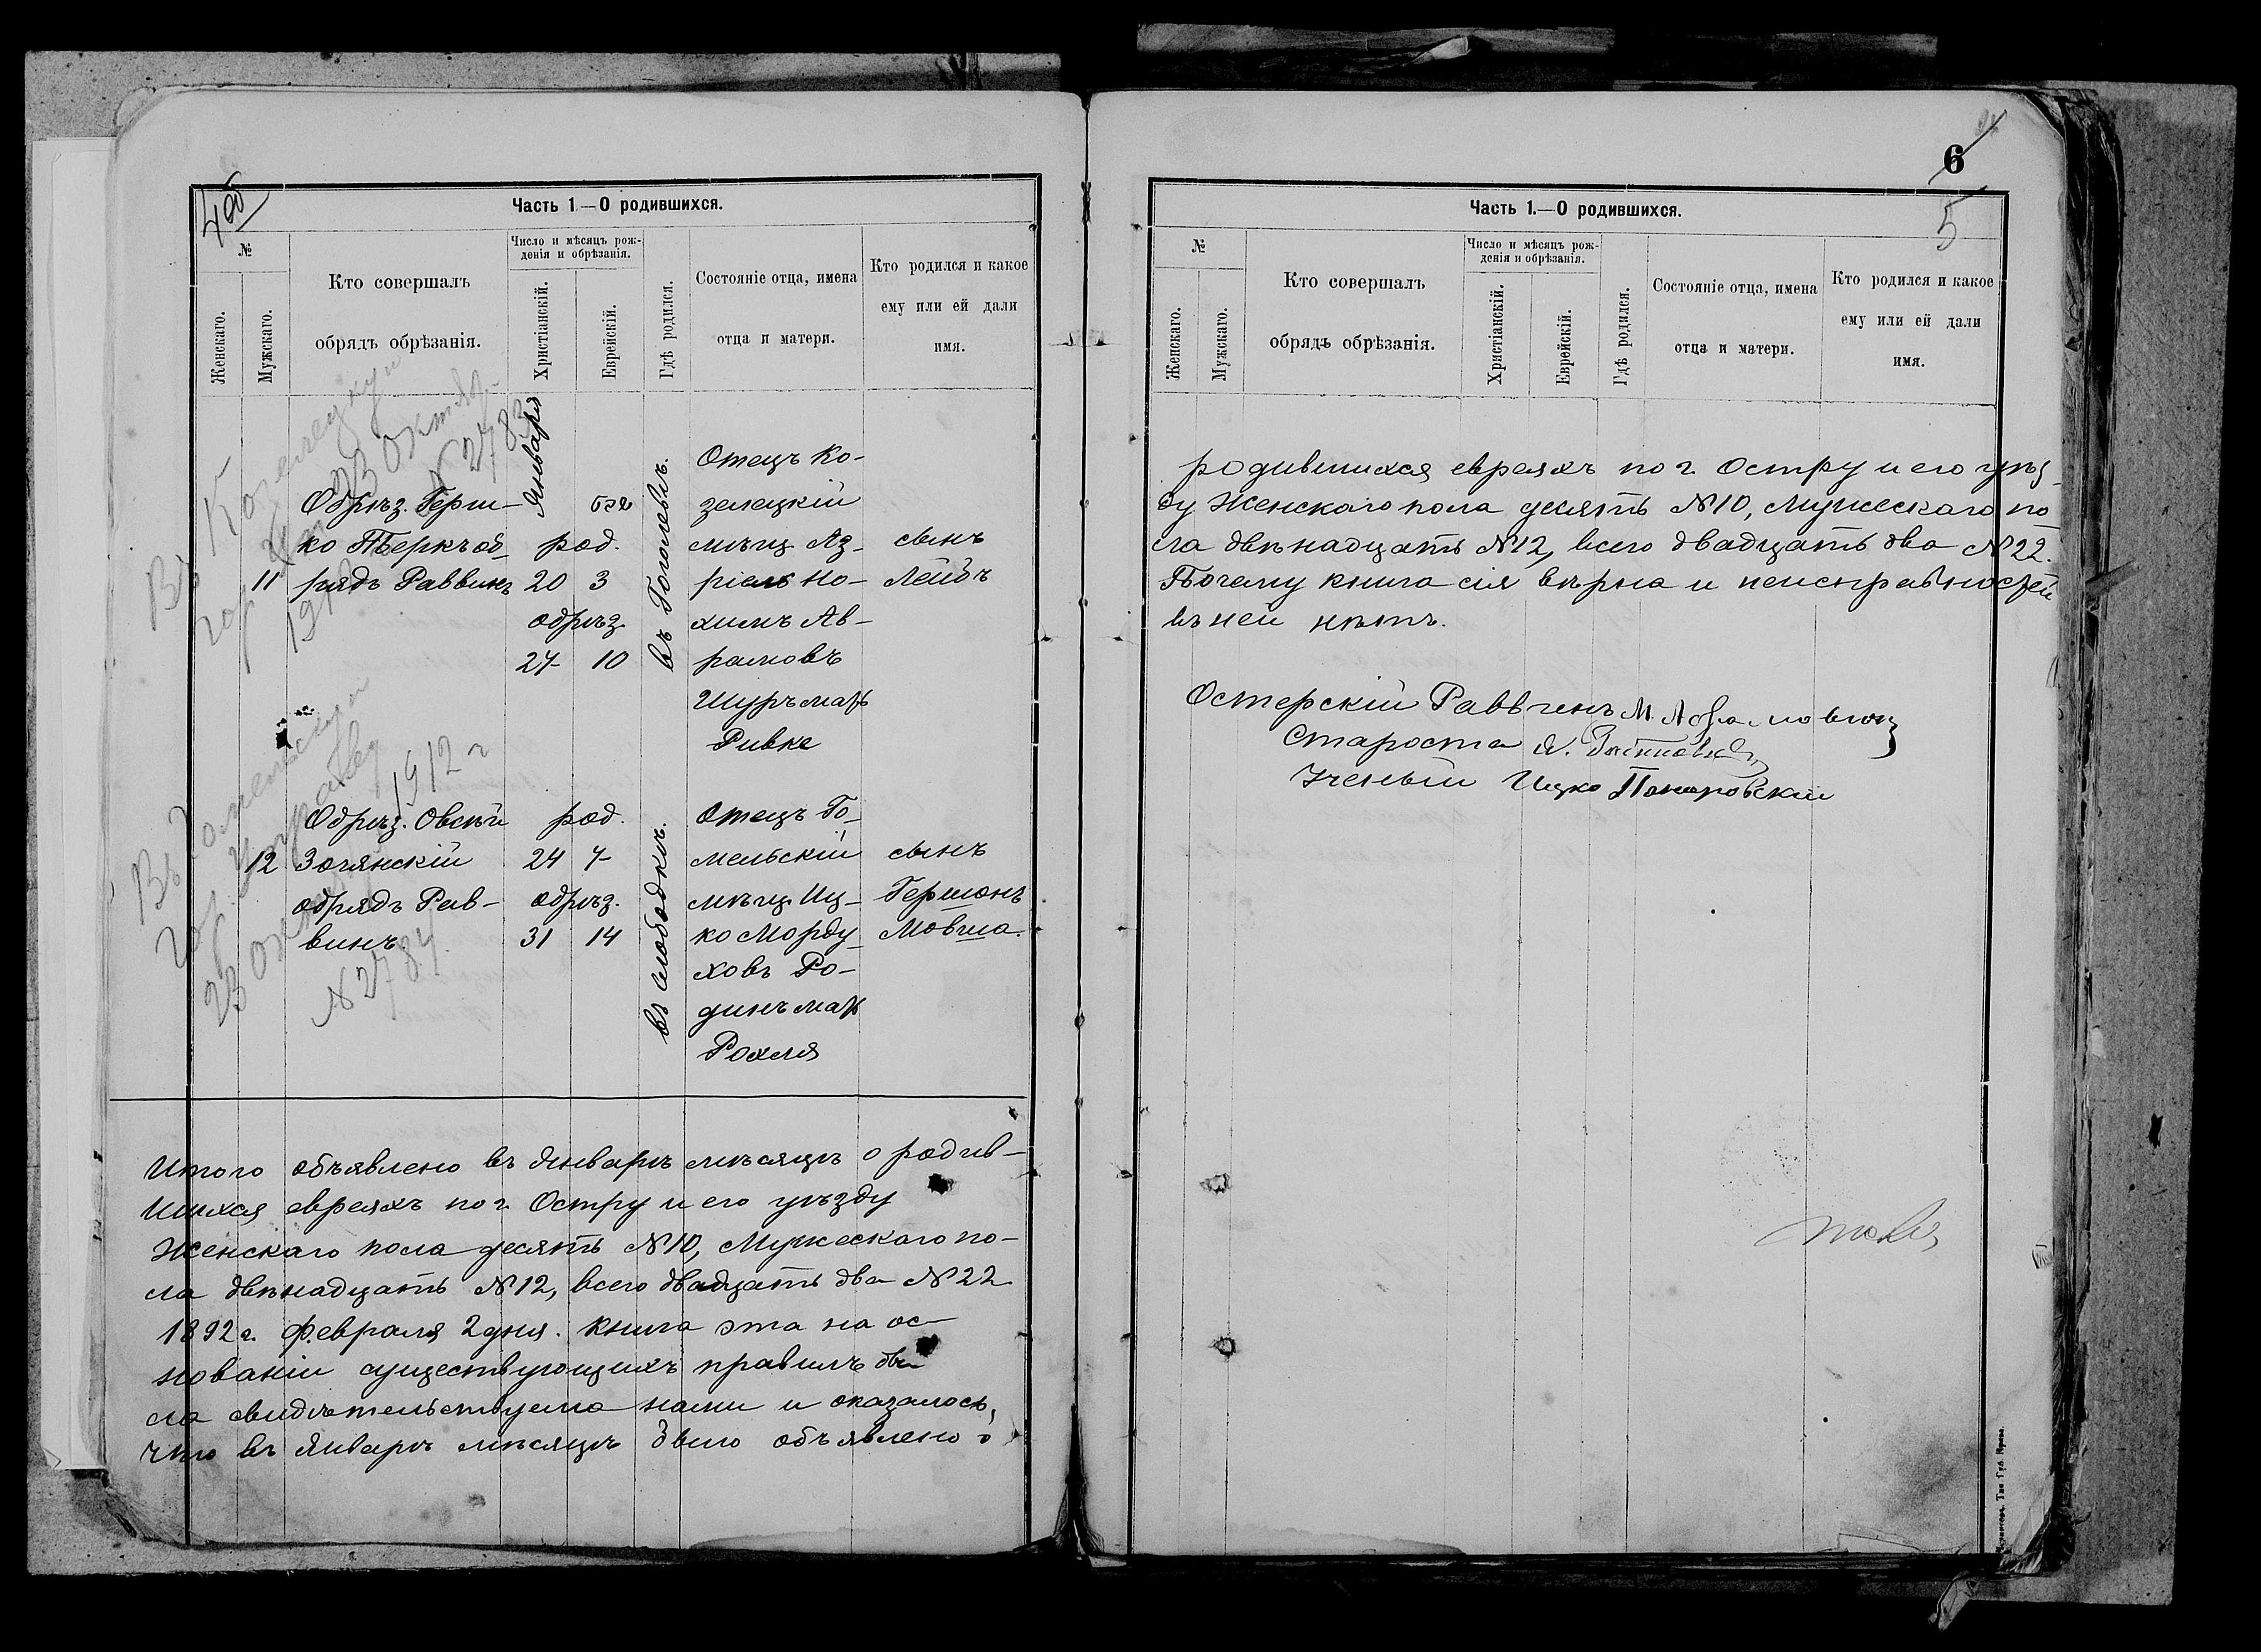 4об
Часть 1.—О родившихся.
№
Женскаго.
Мужскаго.
Кто совершалъ
обрядъ обрѣзанія.
Число и мѣсяцъ рож-
денія и обрѣзанія.
Христіанскій.
Еврейскій.
Гдѣ родился.
Состояніе отца, имена
отца и матери.
Кто родился и какое
ему или ей дали
имя.
Января
Обрѣз. Герш-
ко Перкъ об-
11 рядъ Раввинъ
род.
20 3
обрѣз.
27 10
въ Гоголевѣ.
Отецъ Ко-
зелецкій
мѣщ. Аз-
ріелъ Но-
химъ Ав-
рамовъ
Шуръ мать
Ривке
сынъ
Лейбъ
Обрѣз. Овсѣй
12 Зочянскій
обрядъ Рав-
винъ
род.
24 7
обрѣз.
31 14
въ слободкѣ.
Отецъ Го-
мельскій
мѣщ. Иц-
ко Морду-
ховъ Ро-
динъ мать
Рохля
сынъ
Гершонъ
Мовша.
23 Октяб
№ 2783
1912 г
№ 2784.
Итого объявлено въ Январѣ мѣсяцѣ о родив-
шихся евреяхъ по г. Остру и его уѣзду
Женскаго пола десять №10, Мужескаго по-
ла двѣнадцать №12, всего двадцать два №22
1892 г. Февраля 2 дня. Книга эта на ос-
нованіи существующихъ правилъ бы-
ла свидѣтельствуема нами и оказалось,
что въ Январѣ мѣсяцѣ было объявлено о
6
5
Часть 1.—О родившихся.
№
Женскаго.
Мужскаго.
Кто совершалъ
обрядъ обрѣзанія.
Число и мѣсяцъ рож-
денія и обрѣзанія.
Христіанскій.
Еврейскій.
Гдѣ родился.
Состояніе отца, имена
отца и матери.
Кто родился и какое
ему или ей дали
имя.
родившихся евреяхъ по г. Остру и его уѣз-
ду Женскаго пола десять №10, Мужескаго по
ла двѣнадцать №12, всего двадцать два №22.
Почему книга сія вѣрна и неисправностей
въ ней нѣтъ.
Остерскій Раввинъ М. Абрамовичъ
Староста
Ученый Ицко